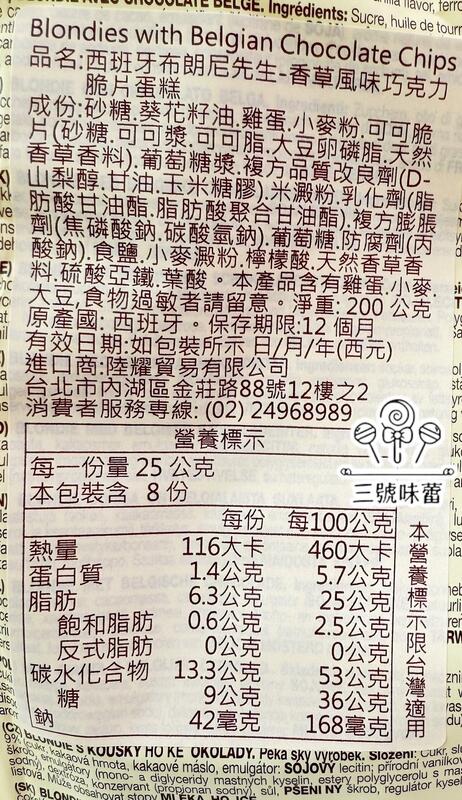 CHOCOLATE BELGE. Ingrédients: Sucre, huile de tourn
Blondies with Belgian Chocolate Chips
品名:西班牙布朗尼先生-香草風味巧克力
脆片蛋糕
成份:砂糖.葵花籽油.雞蛋.小麥粉.可可脆
片(砂糖.可可漿.可可脂.大豆卵磷脂.天然
香草香料).葡萄糖漿.複方品質改良劑(D-
山梨醇.甘油.玉米糖膠).米澱粉.乳化劑(脂
肪酸甘油酯.脂肪酸聚合甘油酯).複方膨脹
劑(焦磷酸鈉.碳酸氫鈉).葡萄糖.防腐劑(丙
酸鈉).食鹽.小麥澱粉.檸檬酸.天然香草香
料.硫酸亞鐵.葉酸。本產品含有雞蛋.小麥.
大豆,食物過敏者請留意。淨重: 200 公克
原產國: 西班牙。保存期限:12 個月
有效日期:如包裝所示 日/月/年(西元)
進口商:陸耀貿易有限公司
台北市內湖區金莊路88號12樓之2
消費者服務專線: (02) 24968989
三號味蕾
營養標示
每一份量 25 公克
本包裝含 8 份
每份 每100公克
熱量 116大卡 460大卡
蛋白質 1.4公克 5.7公克
脂肪 6.3公克 25公克
飽和脂肪 0.6公克 2.5公克
反式脂肪 0公克 0公克
碳水化合物 13.3公克 53公克
糖 9公克 36公克
鈉 42毫克 168毫克
本營養標示限台灣適用
(CZ) BLONDIE S KOUSKY HO KE OKOLÁDY. Peka sky výrobek. Složení: Cukr, sl
cukr, kakaová hmota, kakaové máslo, emulgátor: SÓJOVÝ lecitin; přírodní vanilkov
škrob, emulgátory (mono- a diglyceridy mastných kyselin, estery polyglycerolu s mas
sodný), dextróza, konzervant (propionan sodný), sůl, PŠENI NÝ škrob, regulátor kysel
listová. Může obsahovat stopy MLÉKA,
(SK) BLONDI